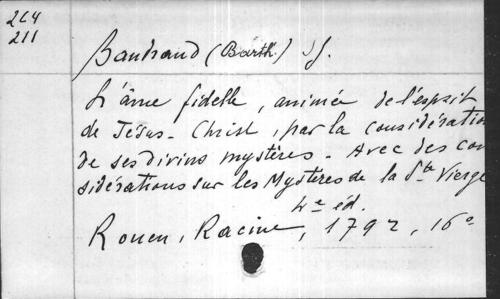 264
211
Baudrand (Barth.) SJ.
L'âme fidelle, animée de l'esprit
de Jésus-Christ, par la considération
de ses divins mystères. Avec des con
sidérations sur les Mystères de la Ste Vierge
4e éd.
Rouen, Racine, 1792, 16o